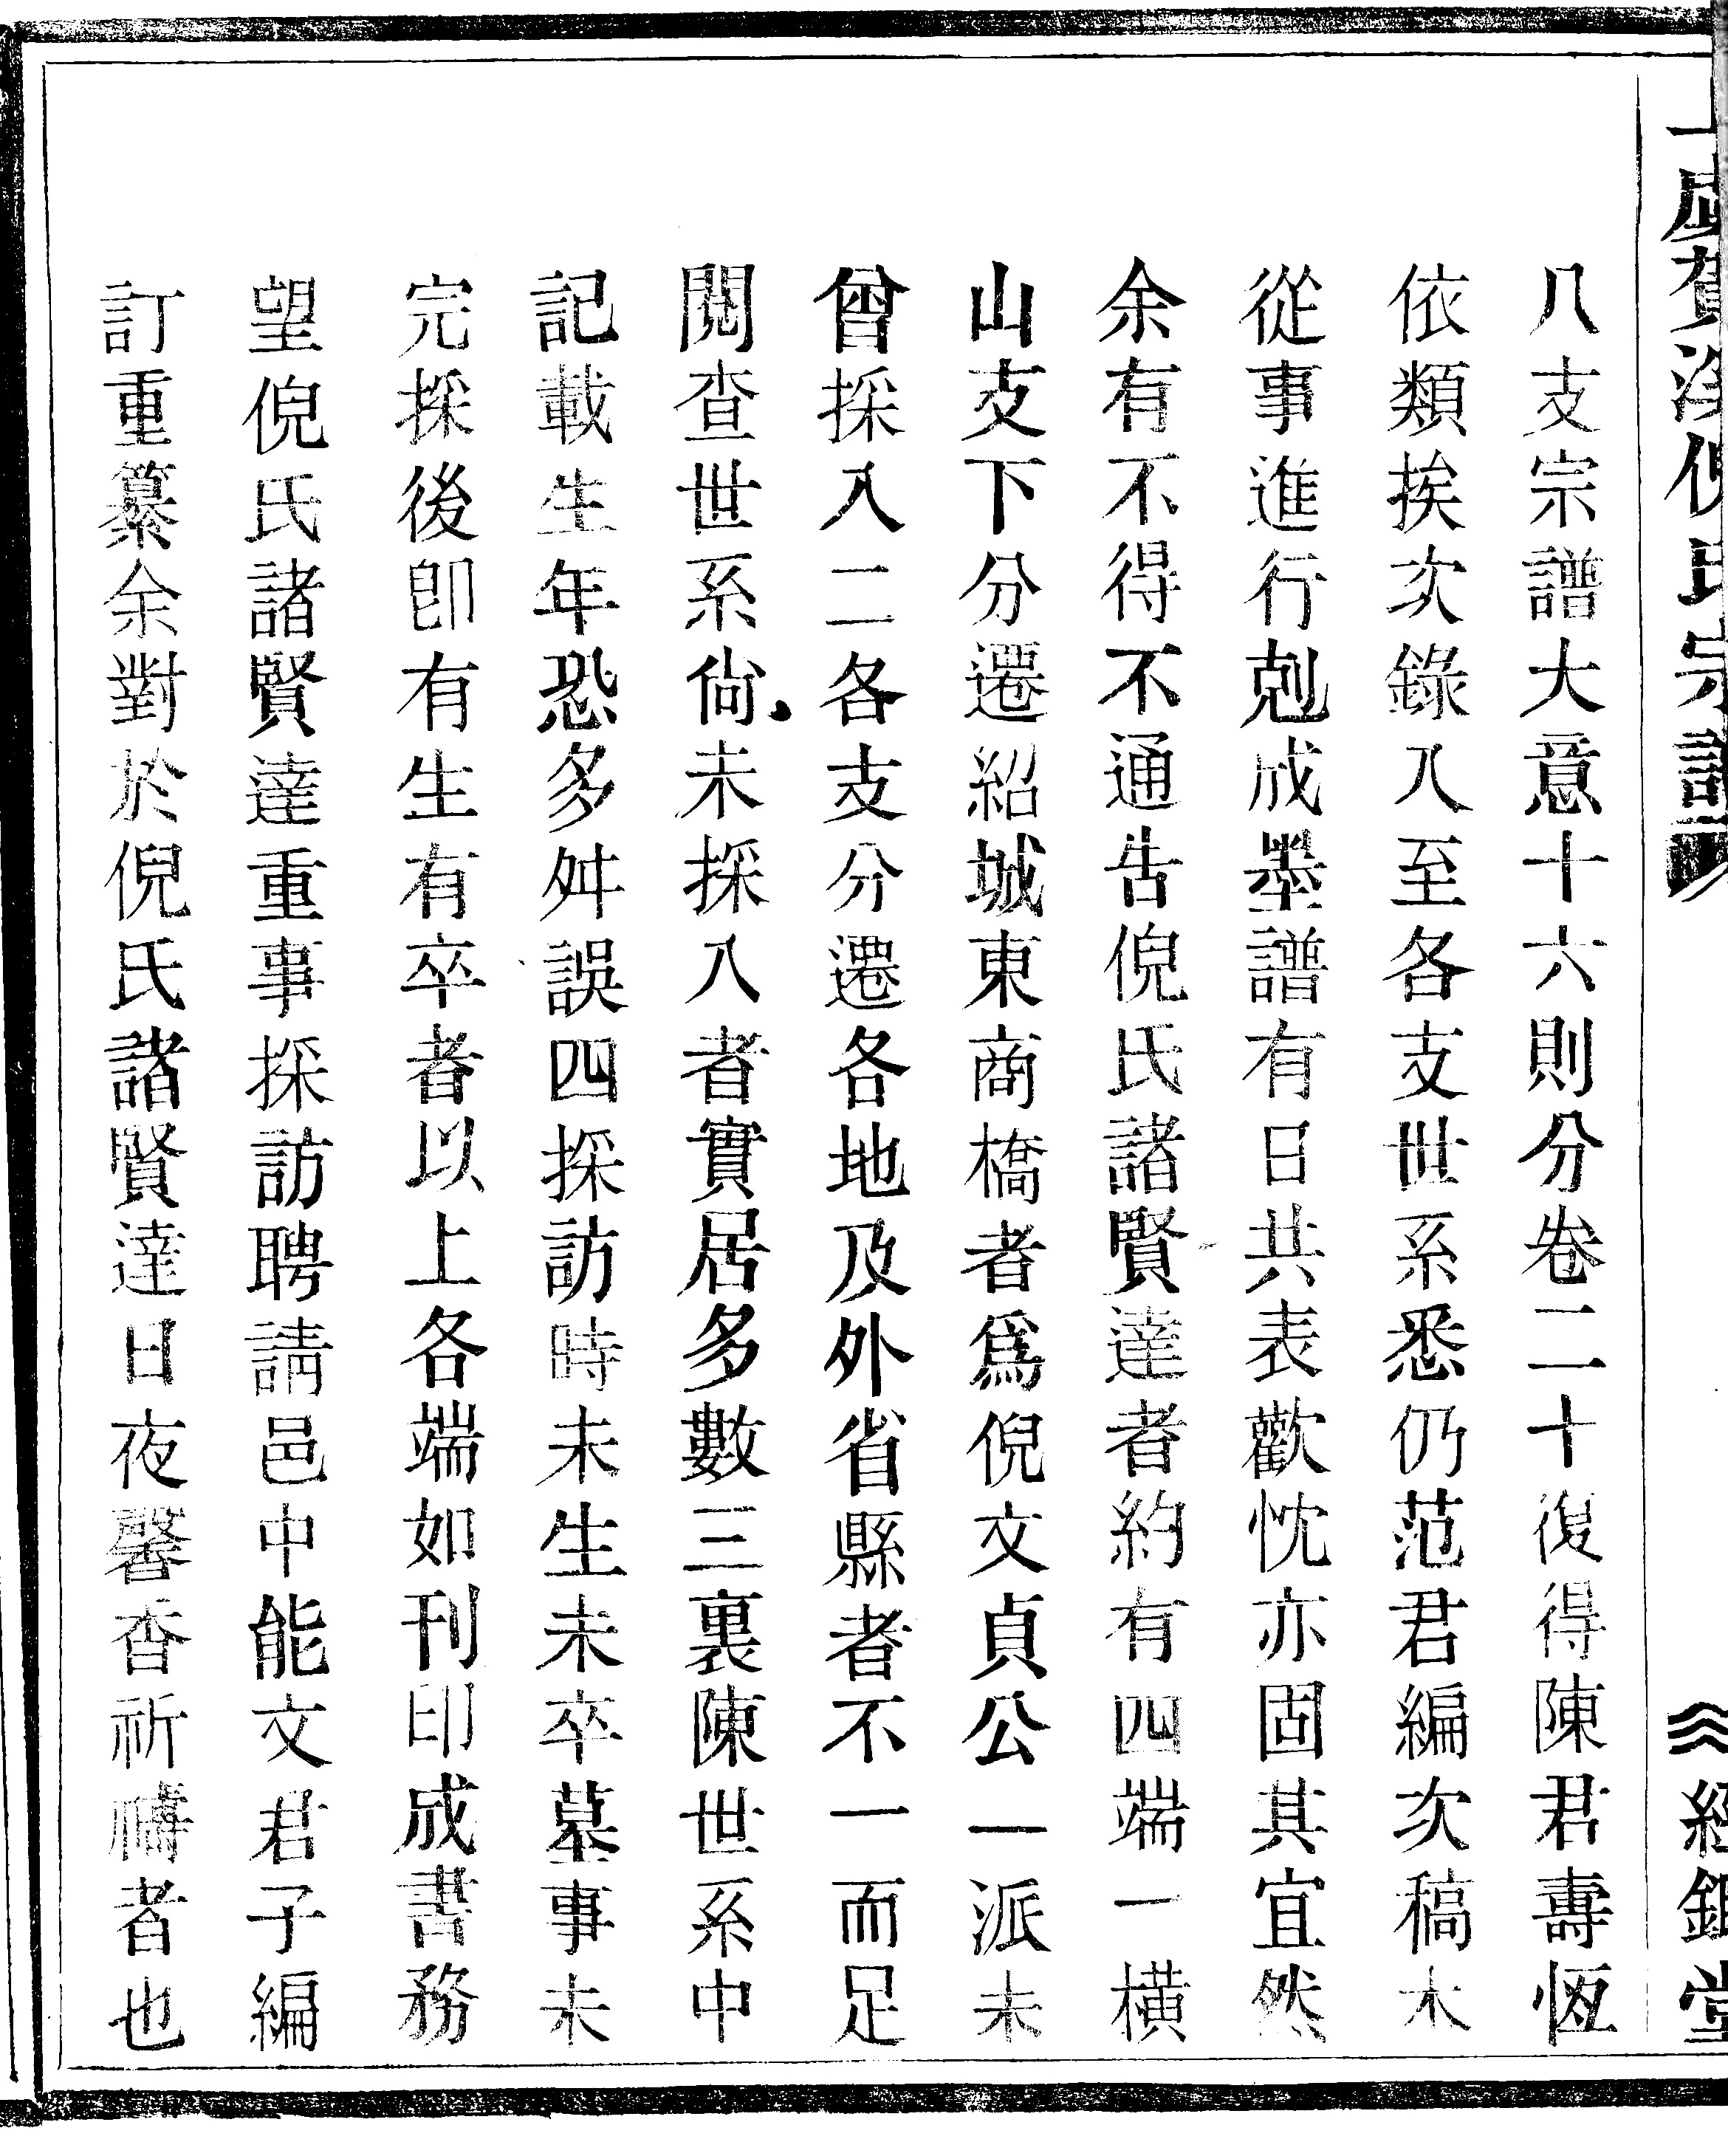 上虞賀溪倪氏宗譜 經鉏堂
八支宗譜大意十六則分卷二十復得陳君壽恆
依類挨次錄入至各支世系悉仍范君編次稿本
從事進行剋成墨譜有日共表歡忱亦固其宜然
余有不得不通告倪氏諸賢達者約有四端一橫
山支下分遷紹城東商橋者爲倪文貞公一派未
曾採入二各支分遷各地及外省縣者不一而足
閱查世系尙未採入者實居多數三裏陳世系中
記載生年恐多舛誤四採訪時未生未卒墓事未
完採後卽有生有卒者以上各端如刊印成書務
望倪氏諸賢達重事採訪聘請邑中能文君子編
訂重纂余對於倪氏諸賢達日夜馨香祈禱者也